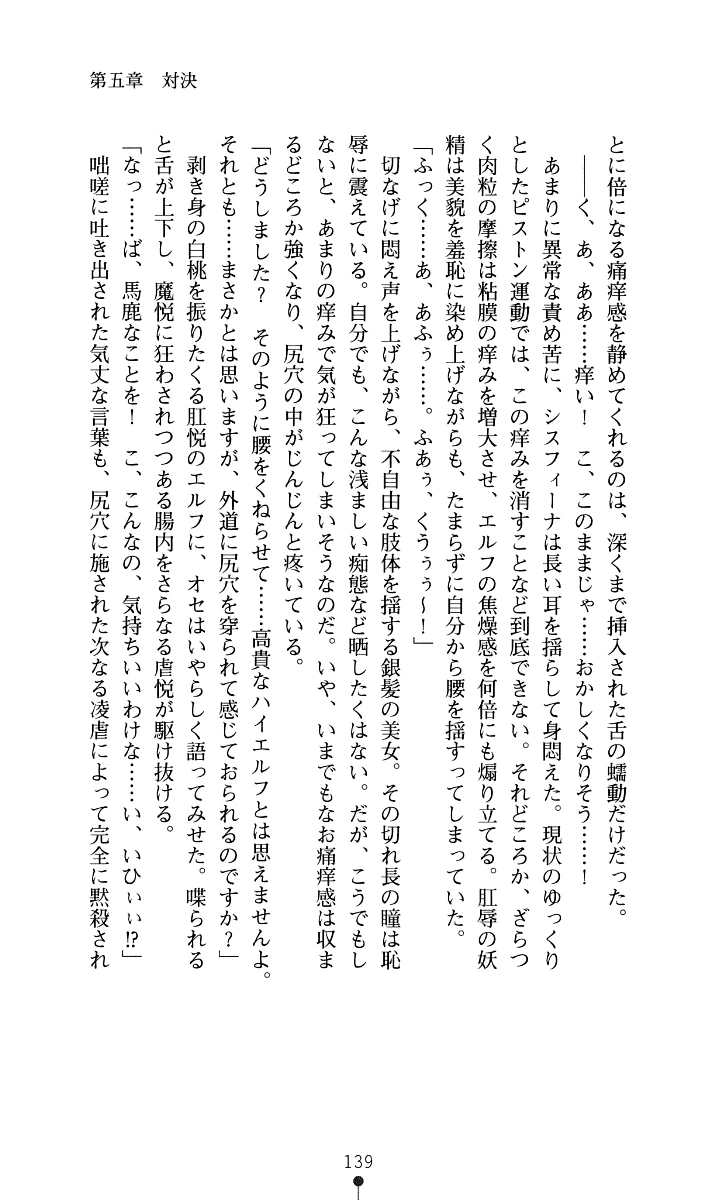 第五章　対決
とに倍になる痛痒感を静めてくれるのは、深くまで挿入された舌の蠕動だけだった。
――く、あ、ああ……痒い！　こ、このままじゃ……おかしくなりそう……！
あまりに異常な責め苦に、シスフィーナは長い耳を揺らして身悶えた。現状のゆっくり
としたピストン運動では、この痒みを消すことなど到底できない。それどころか、ざらつ
く肉粒の摩擦は粘膜の痒みを増大させ、エルフの焦燥感を何倍にも煽り立てる。肛辱の妖
精は美貌を羞恥に染め上げながらも、たまらずに自分から腰を揺すってしまっていた。
「ふっく……あ、あふぅ……。ふあぅ、くうぅぅ～！」
切なげに悶え声を上げながら、不自由な肢体を揺する銀髪の美女。その切れ長の瞳は恥
辱に震えている。自分でも、こんな浅ましい痴態など晒したくはない。だが、こうでもし
ないと、あまりの痒みで気が狂ってしまいそうなのだ。いや、いまでもなお痛痒感は収ま
るどころか強くなり、尻穴の中がじんじんと疼いている。
「どうしました？　そのように腰をくねらせて……高貴なハイエルフとは思えませんよ。
それとも……まさかとは思いますが、外道に尻穴を穿られて感じておられるのですか？」
剥き身の白桃を振りたくる肛悦のエルフに、オセはいやらしく語ってみせた。喋られる
と舌が上下し、魔悦に狂わされつつある腸内をさらなる虐悦が駆け抜ける。
「なっ……ば、馬鹿なことを！　こ、こんなの、気持ちいいわけな……い、いひぃぃ!?」
咄嗟に吐き出された気丈な言葉も、尻穴に施された次なる凌虐によって完全に黙殺され
139